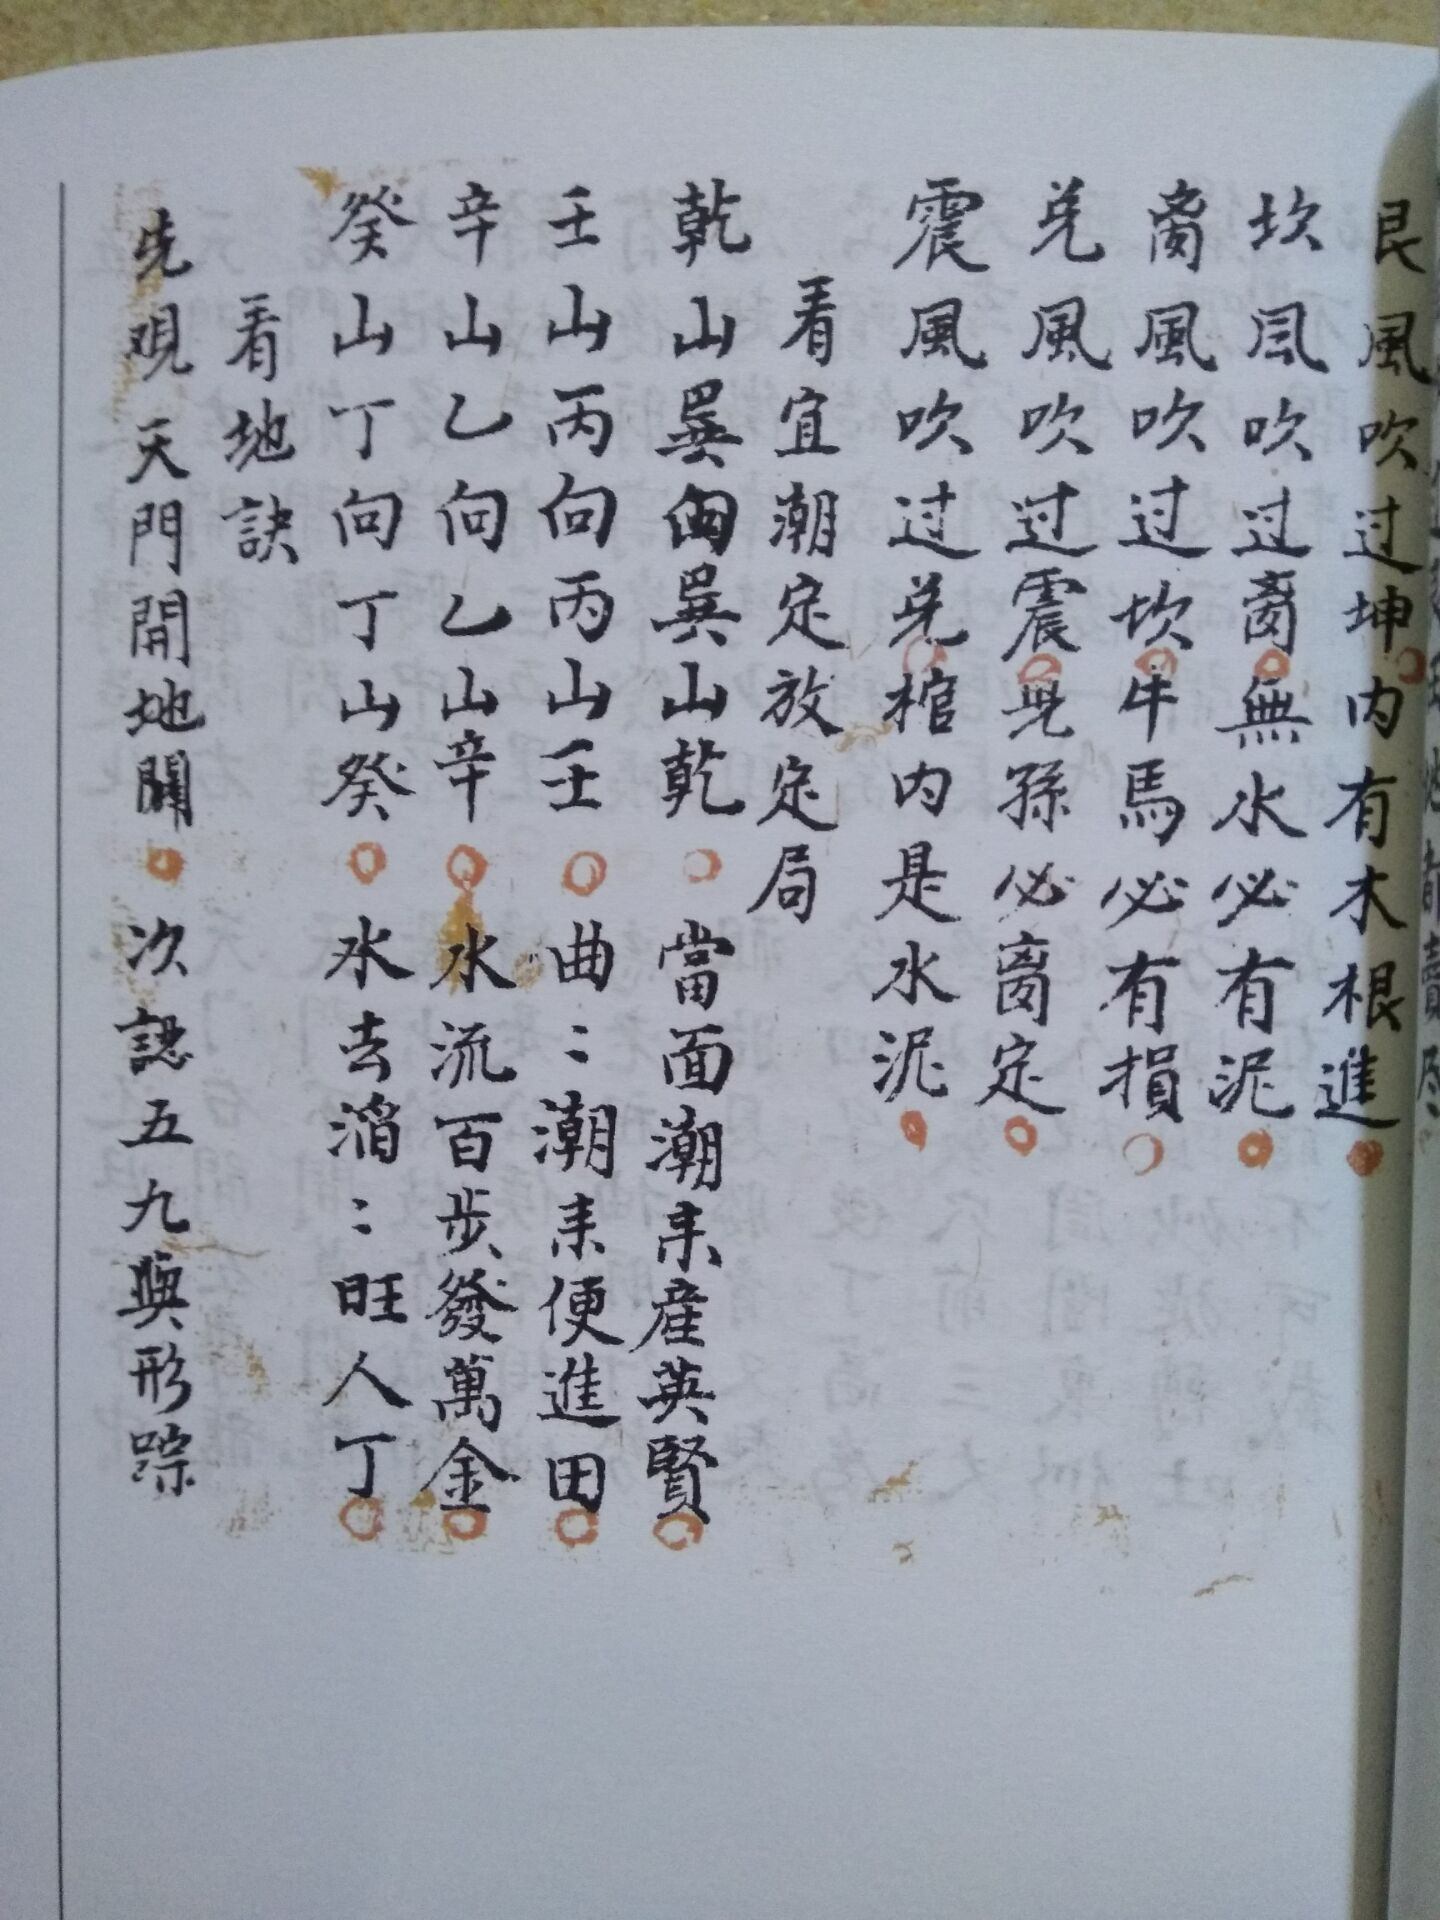 艮風吹过坤内有木根進
坎風吹过离無水必有泥
离風吹过坎牛馬必有損
兑風吹过震兒孫必离定
震風吹过兑棺内是水泥
看宜潮定放定局
乾山巽向巽山乾 當面潮来産英賢
壬山丙向丙山壬 曲:潮来便進田
辛山乙向乙山辛 水流百步發萬金
癸山丁向丁山癸 水去滔:旺人丁
看地訣
先观天門開地闢 次認五九與形踪